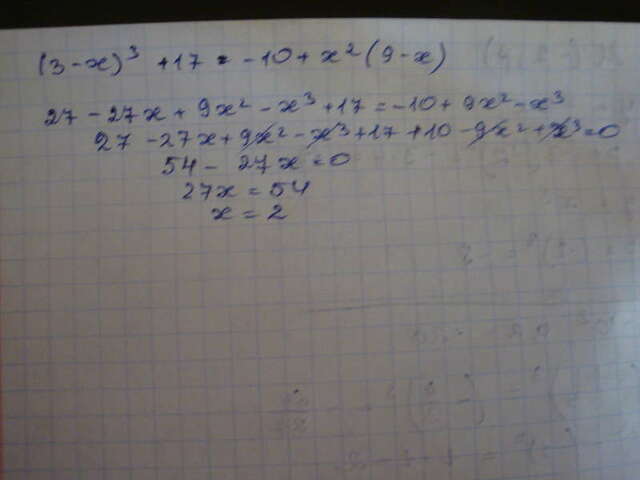 (3-x)³ +17 = -10+x²(9-x)
27 - 27x + 9x² - x³ +17 = -10 + 9x² - x³
27 - 27x + 9x² - x³ +17 +10 - 9x² + x³ = 0
54 - 27x = 0
27x = 54
x = 2